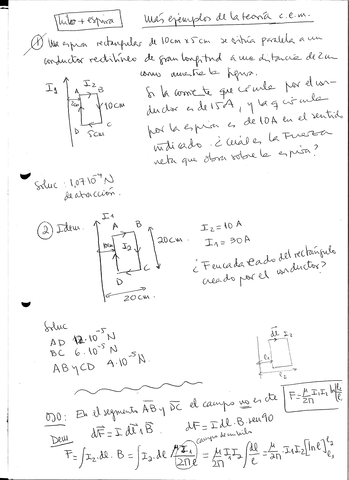 hilo + espira
Más ejemplos de la teoría c.e.m.
① Una espira rectangular de 10cm x 5cm se sitúa paralela a un
conductor rectilíneo de gran longitud a una distancia de 2cm
como muestra la figura.
I1 I2
A B
10cm
D C
5cm
Si la corriente que circula por el con-
ductor es de 15A, y la que circula
por la espira es de 10A en el sentido
indicado. ¿Cuál es la Fuerza
neta que obra sobre la espira?
Soluc: 1,07·10⁻⁴ N
de atracción.
② Idem.
I1
A B
I2
20cm
D C
20cm
I2 = 10A
I1 = 30A
¿F en cada lado del rectángulo
creado por el conductor?
Soluc
AD 12·10⁻⁵ N
BC 6·10⁻⁵ N
AB y CD 4·10⁻⁵ N
dl I2
l1
l2
OJO: En el segmento AB y DC el campo no es cte
F = μ/2π I1 I2 ln l2/l1
Dem dF = I dl ∧ B. dF = I dl · B · sen 90
F = ∫ I2 · dl · B = ∫ I2 · dl · μ I1/2πl = μ/2π I1 I2 ∫ dl/l = μ/2π I1 I2 [ln l]